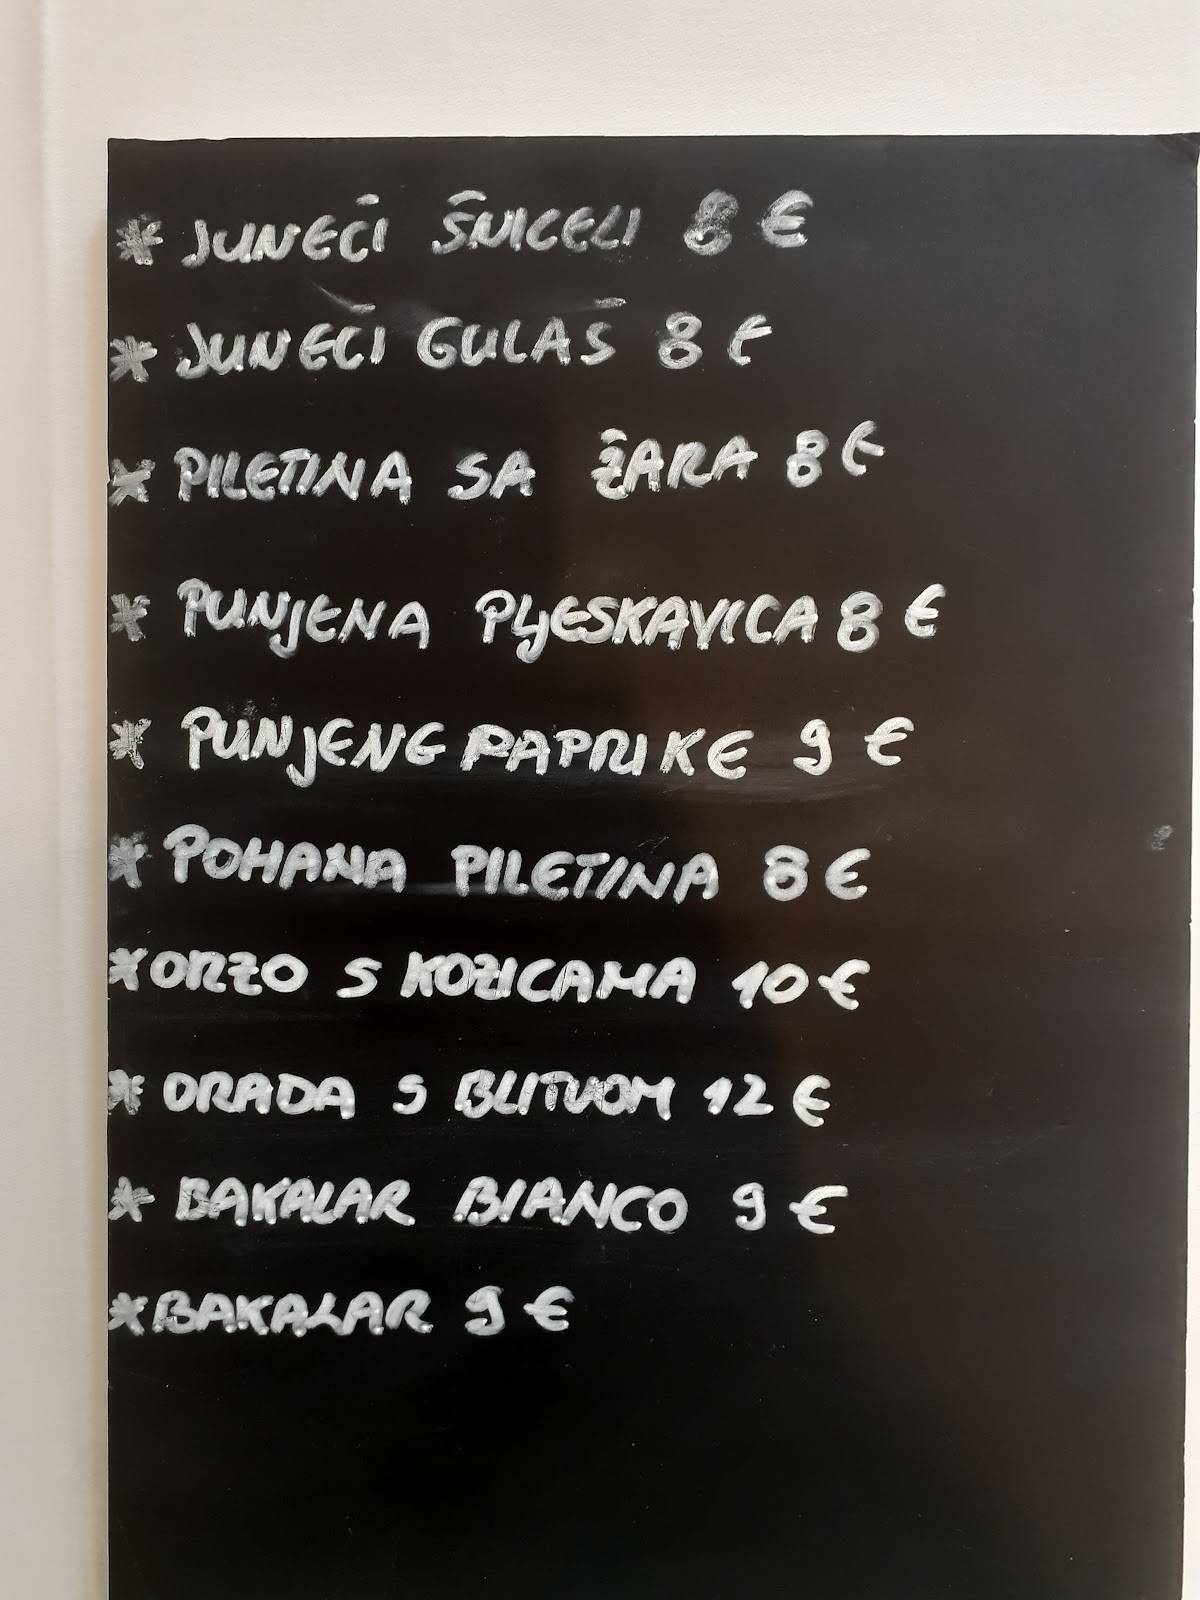 * JUNEĆI ŠNICELI 8 €
* JUNEĆI GULAŠ 8 €
* PILETINA SA ŽARA 8 €
* PUNJENA PLJESKAVICA 8 €
* PUNJENE PAPRIKE 9 €
* POHANA PILETINA 8 €
* ORZO S KOZICAMA 10 €
* ORADA S BLITVOM 12 €
* BAKALAR BIANCO 9 €
* BAKALAR 9 €